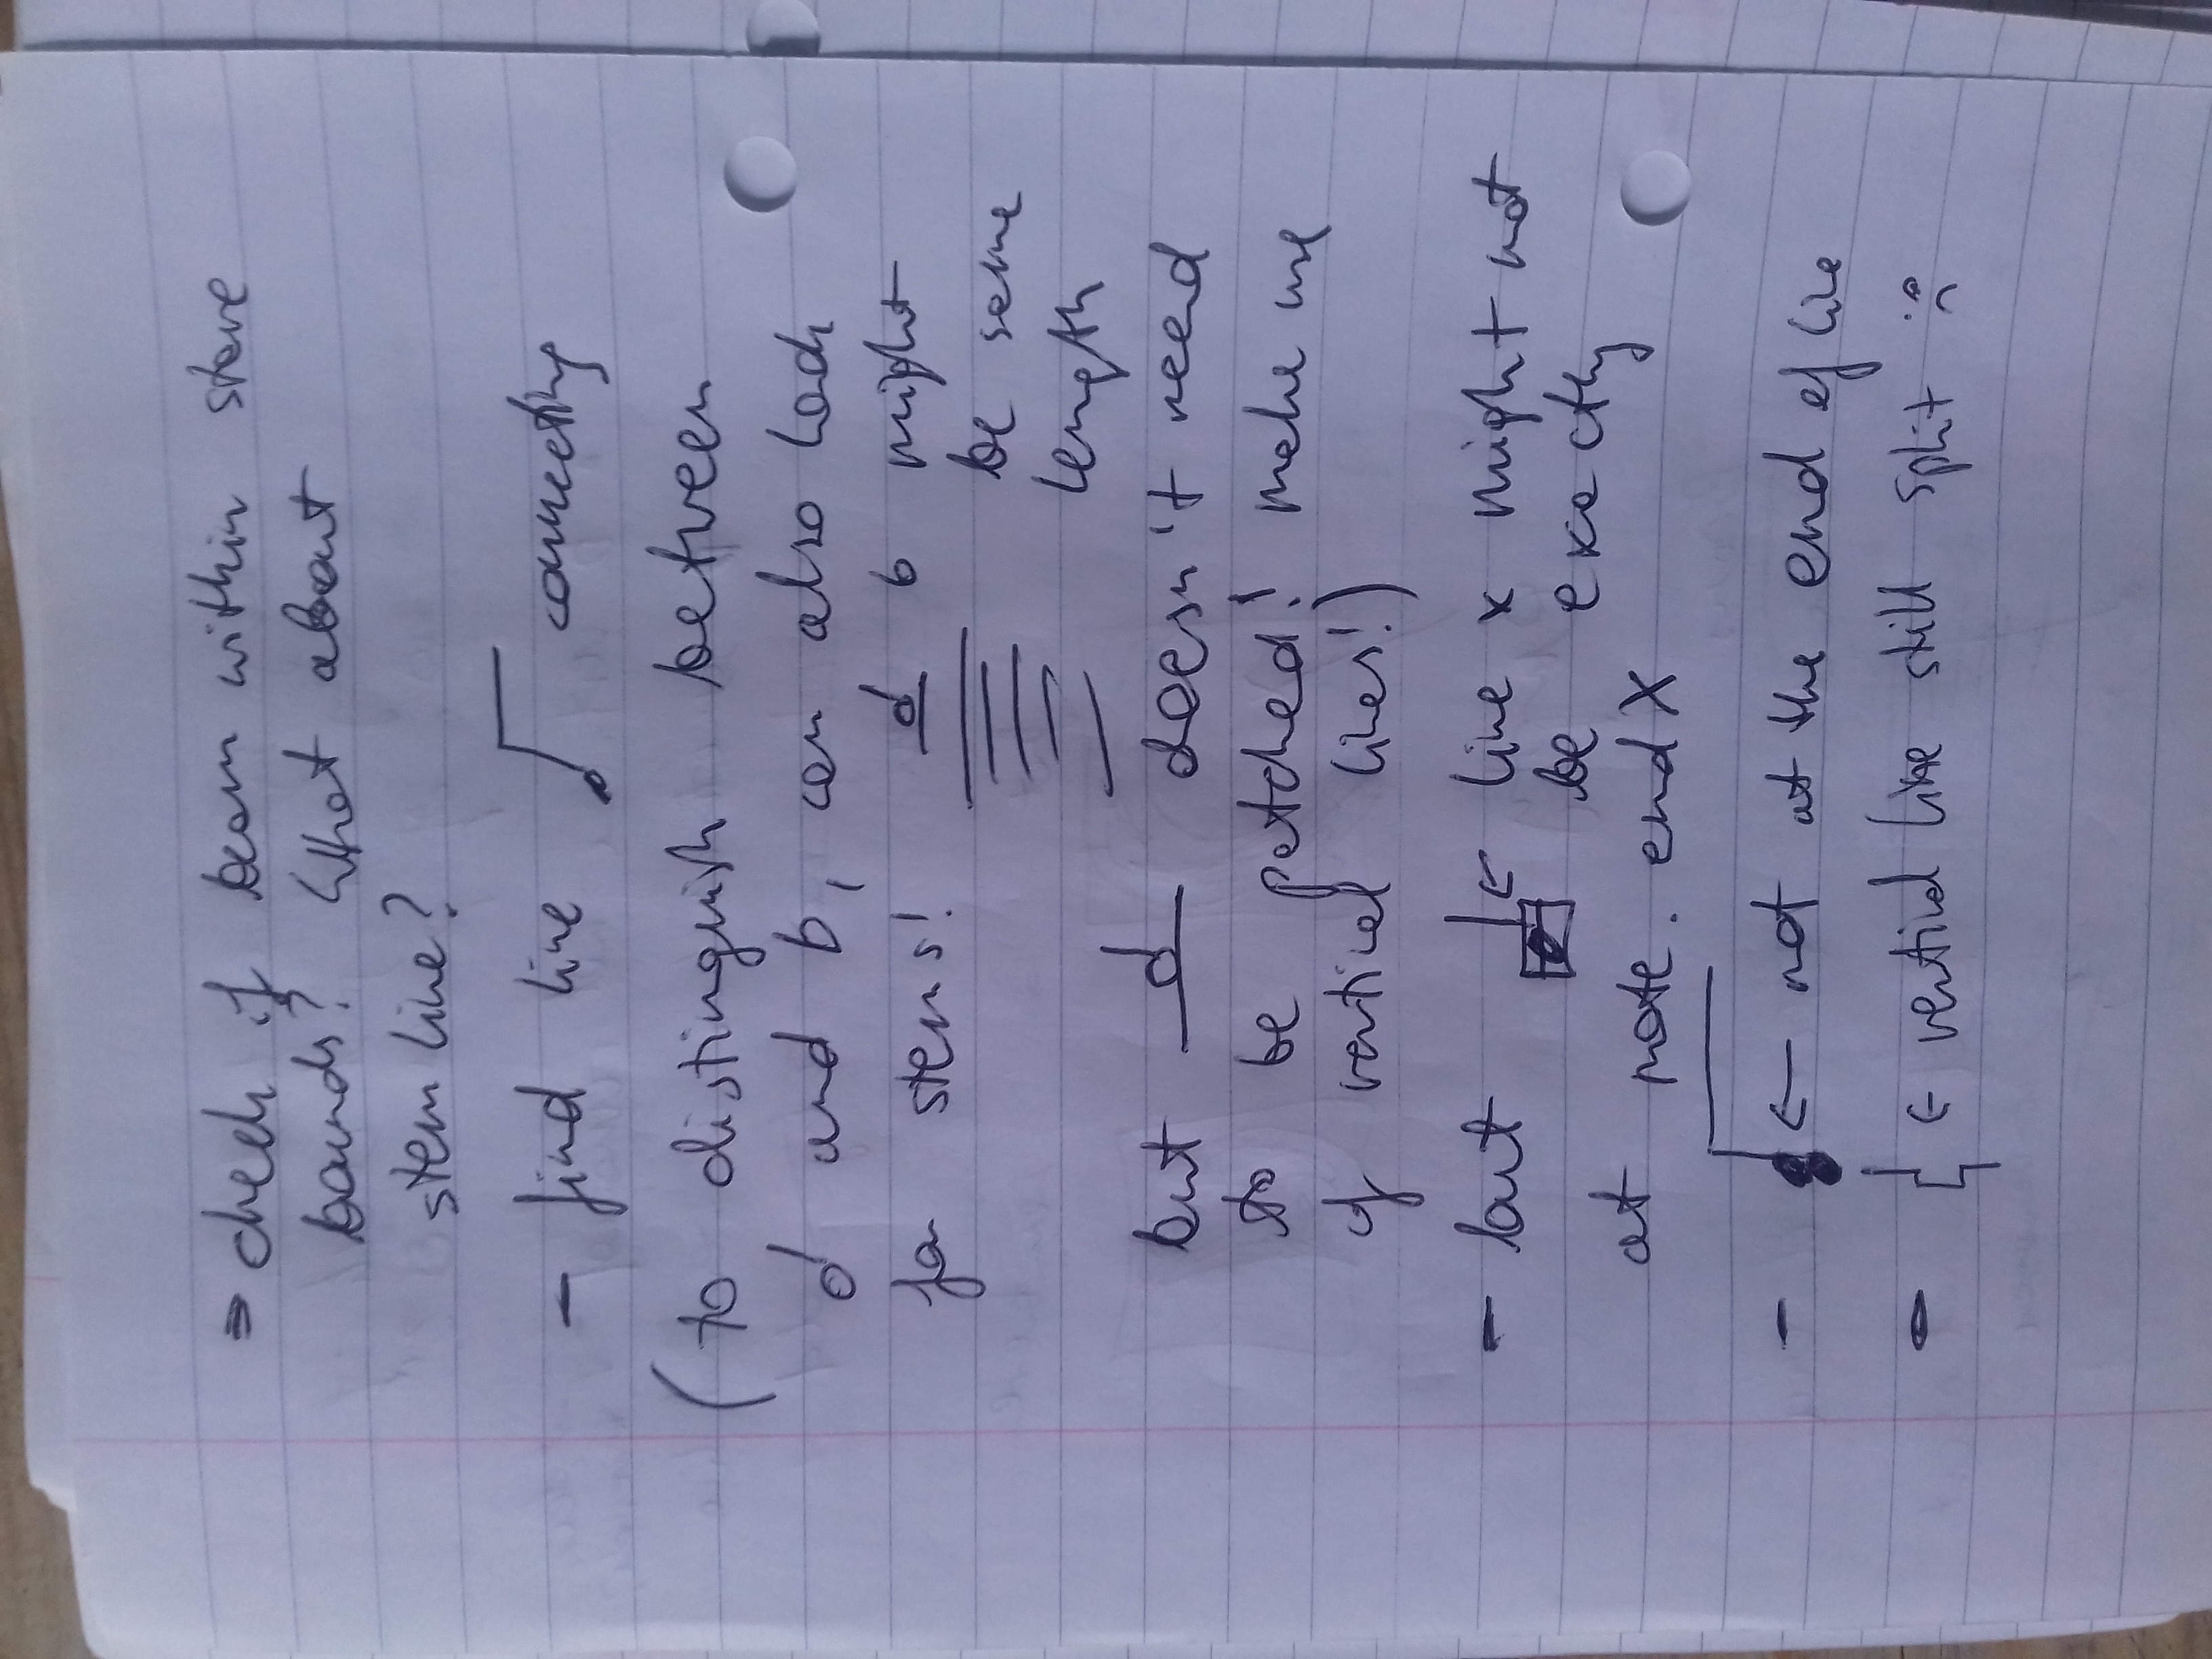 ⇒ check if beam within stave
bounds? What about
stem line?
- find line connecting
(to distinguish between
d and b, can also look
for stems! d b might
be same
length
but d doesn't need
to be patched! make use
of vertical lines!)
- but ← line x might not
be exactly
at note.endX
- ← not at the end of line
- ← vertical line still split :(